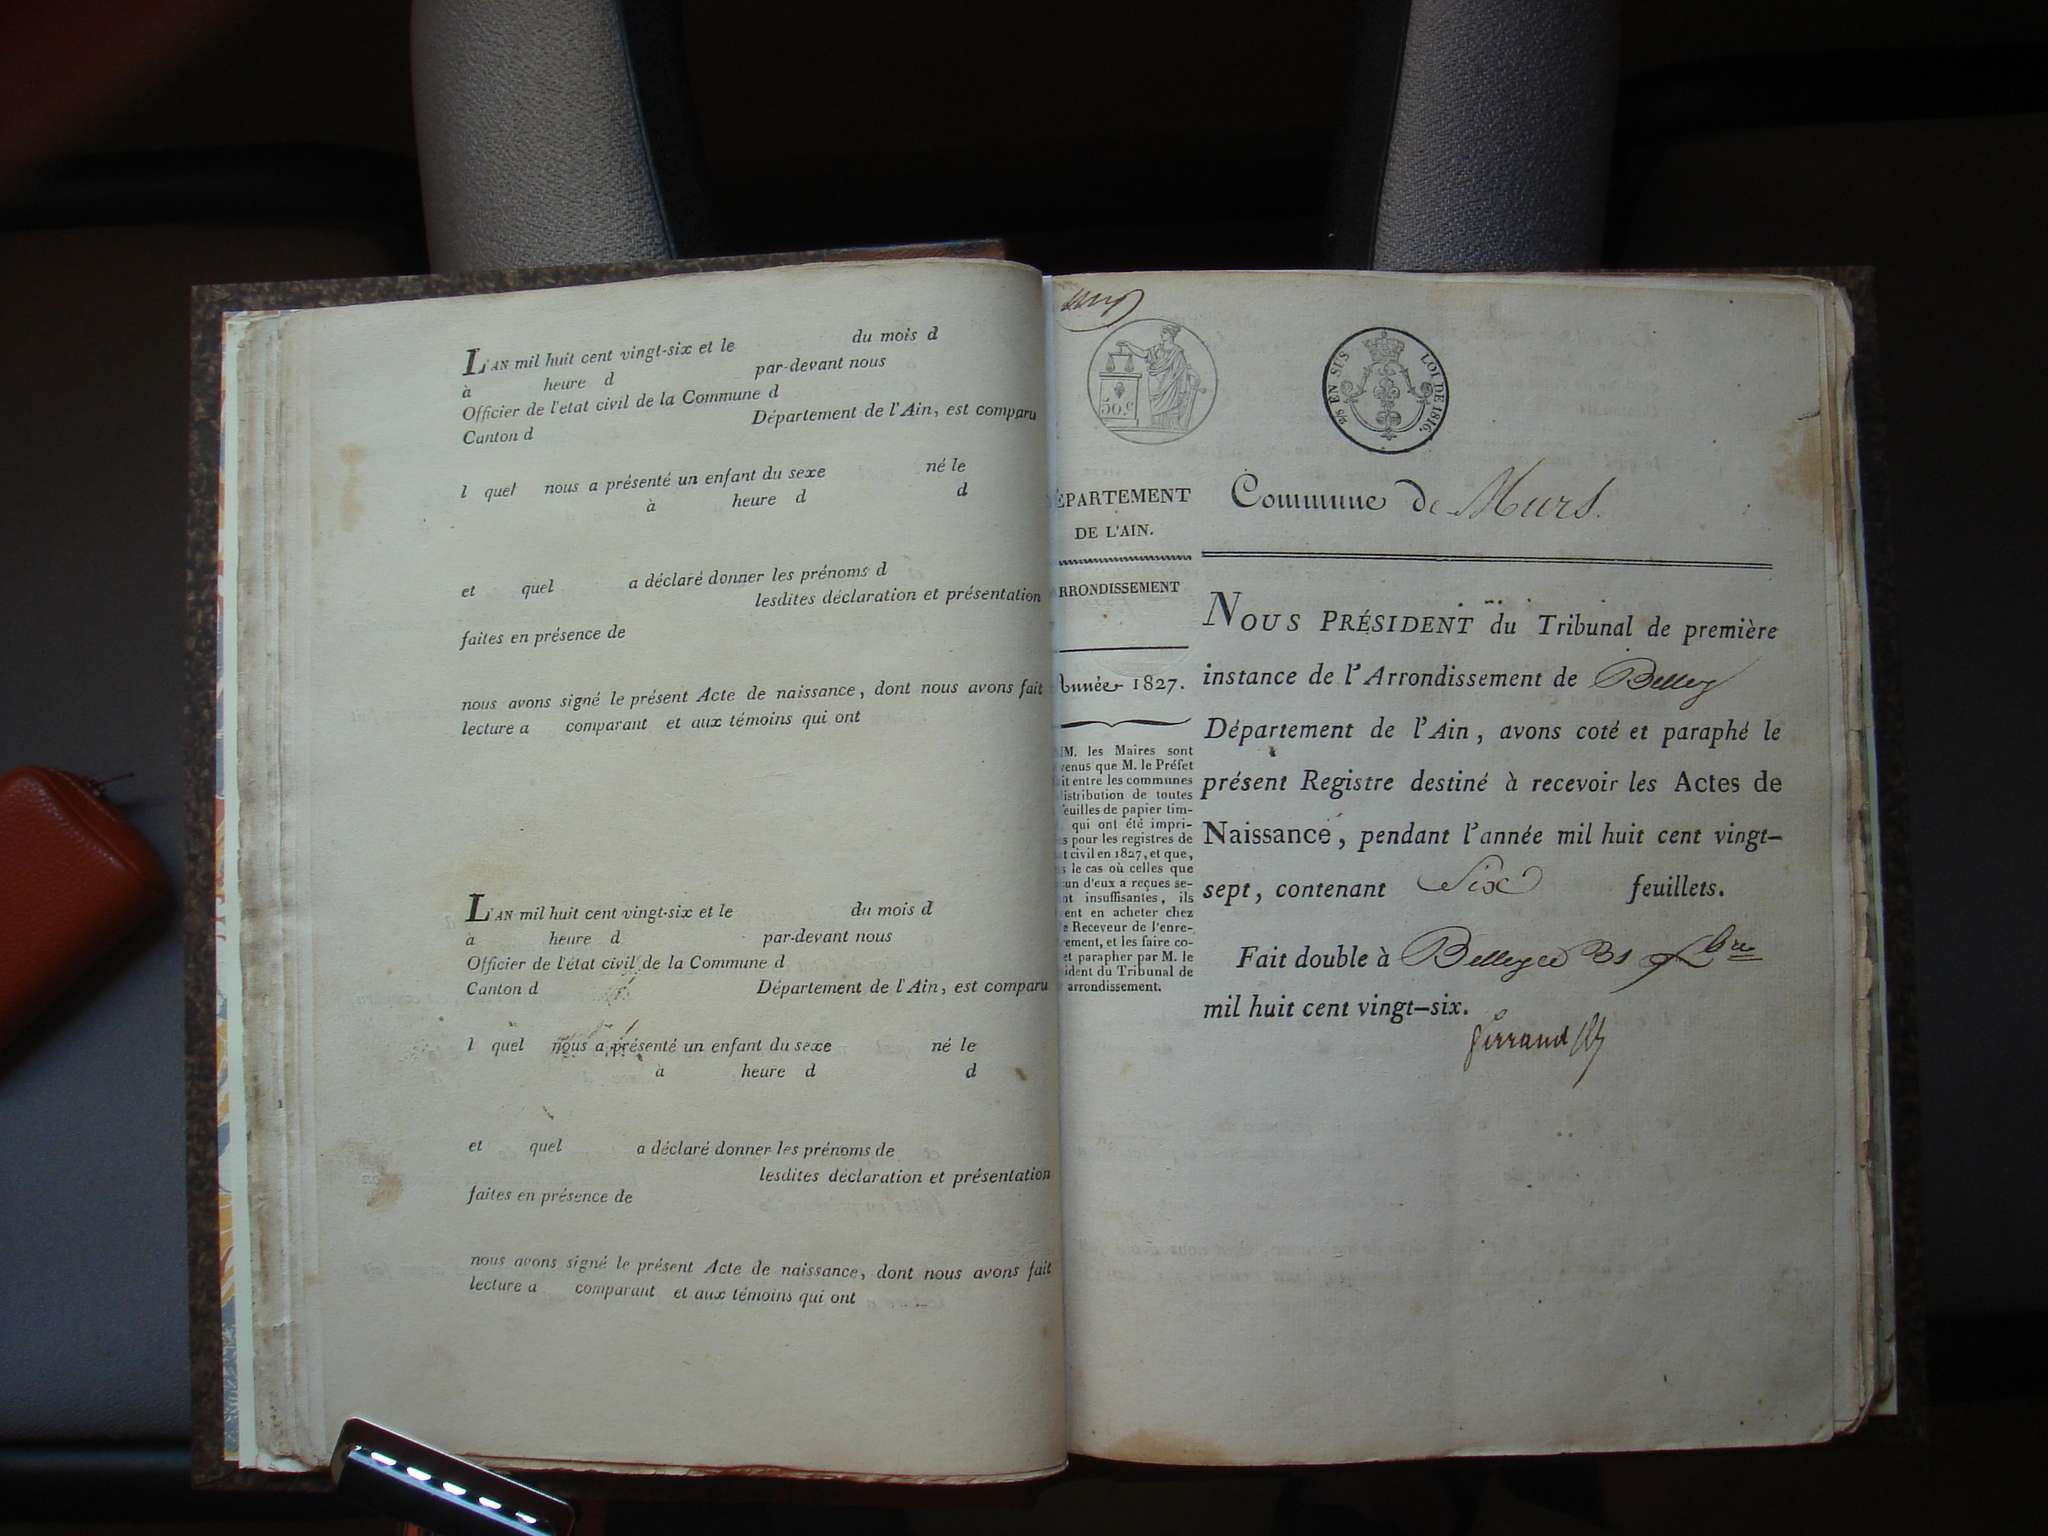 L'AN mil huit cent vingt-six et le du mois d
à heure d par-devant nous
Officier de l'etat civil de la Commune d
Canton d Département de l'Ain, est comparu
l quel nous a présenté un enfant du sexe né le
à heure d d
et quel a déclaré donner les prénoms d
lesdites déclaration et présentation
faites en présence de
nous avons signé le présent Acte de naissance, dont nous avons fait
lecture a comparant et aux témoins qui ont
L'AN mil huit cent vingt-six et le du mois d
à heure d par-devant nous
Officier de l'état civil de la Commune d
Canton d Département de l'Ain, est comparu
l quel nous a présenté un enfant du sexe né le
à heure d d
et quel a déclaré donner les prénoms de
lesdites déclaration et présentation
faites en présence de
nous avons signé le présent Acte de naissance, dont nous avons fait
lecture a comparant et aux témoins qui ont
50 c
EN SUS LOI DE 1816.
ÉPARTEMENT
DE L'AIN.
RRONDISSEMENT
Année 1827.
M. les Maires sont
venus que M. le Préfet
it entre les communes
istribution de toutes
feuilles de papier tim-
qui ont été impri-
s pour les registres de
t civil en 1827, et que,
s le cas où celles que
cun d'eux a reçues se-
nt insuffisantes, ils
ent en acheter chez
e Receveur de l'enre-
rement, et les faire co-
et parapher par M. le
ident du Tribunal de
arrondissement.
Commune de Murs.
NOUS PRÉSIDENT du Tribunal de première
instance de l'Arrondissement de Belley
Département de l'Ain, avons coté et paraphé le
présent Registre destiné à recevoir les Actes de
Naissance, pendant l'année mil huit cent vingt-
sept, contenant Six feuillets.
Fait double à Belley ce 31 Xbre
mil huit cent vingt-six.